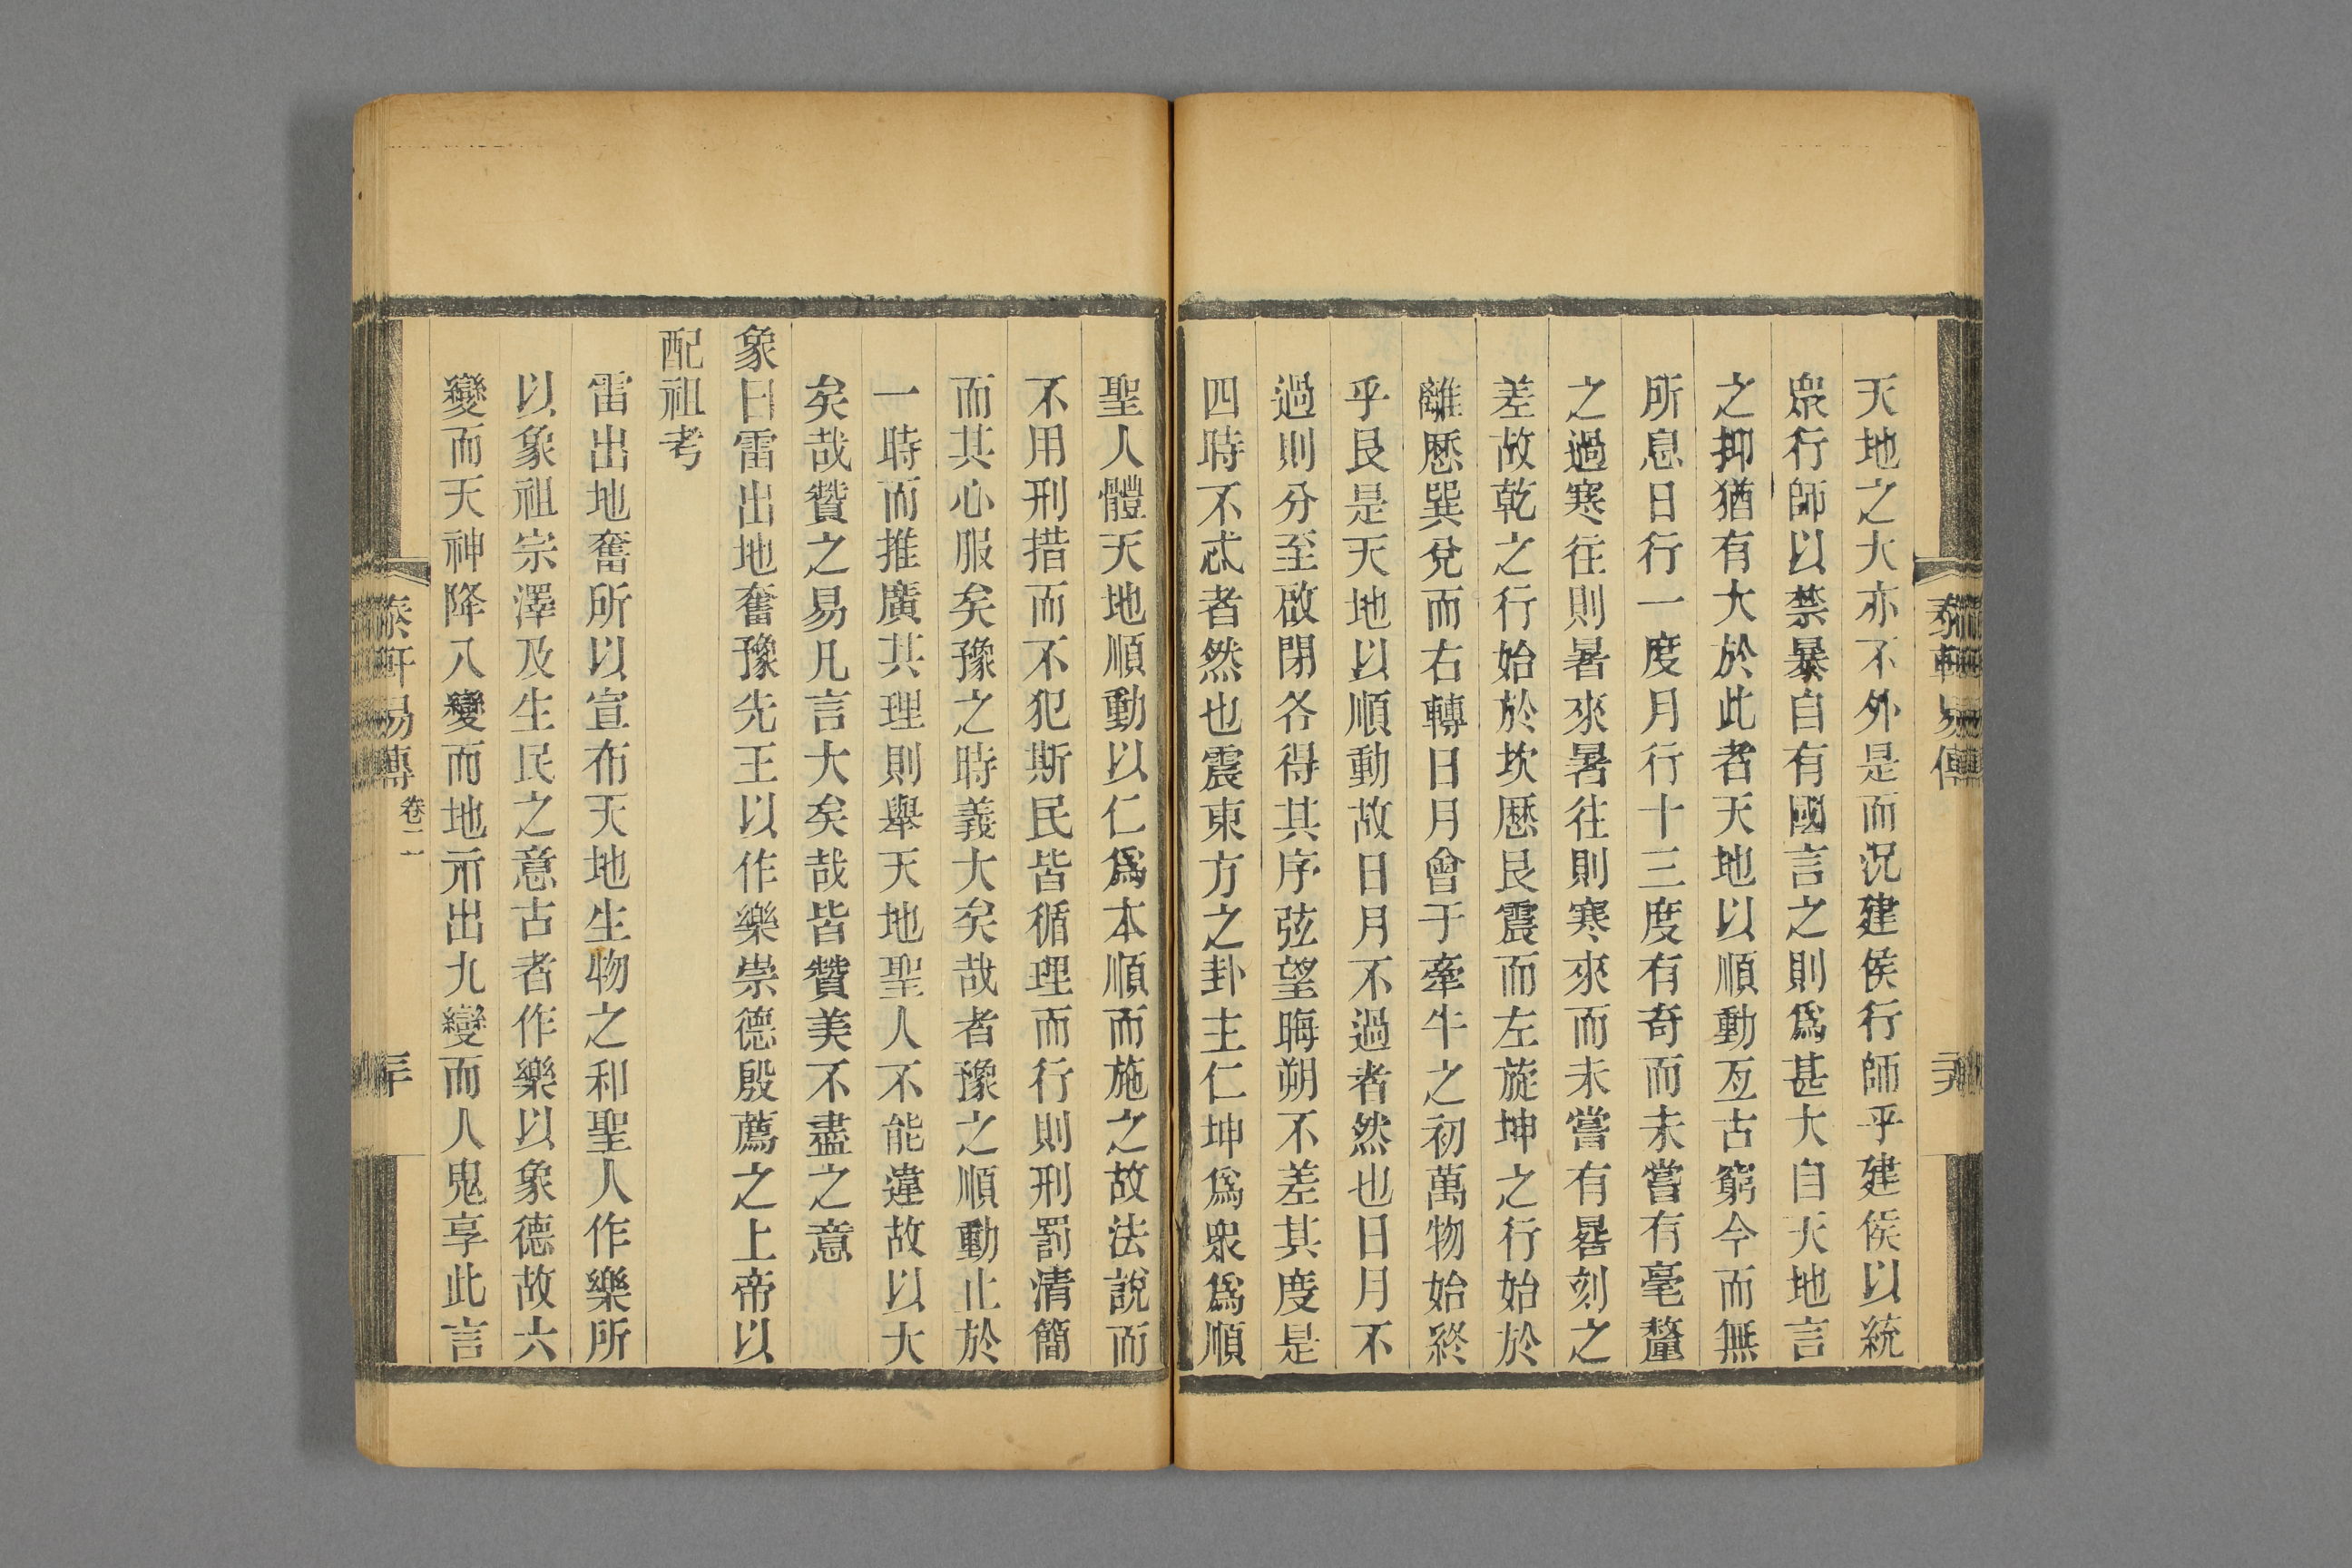 天地之大亦不外是而況建侯行師乎建侯以統
衆行師以禁暴自有國言之則爲甚大自天地言
之抑猶有大於此者天地以順動亙古窮今而無
所息日行一度月行十三度有奇而未嘗有毫釐
之過寒往則暑來暑往則寒來而未嘗有晷刻之
差故乾之行始於坎歷艮震而左旋坤之行始於
離歷巽兌而右轉日月會于牽牛之初萬物始終
乎艮是天地以順動故日月不過者然也日月不
過則分至啟閉各得其序弦望晦朔不差其度是
四時不忒者然也震東方之卦主仁坤爲衆爲順
聖人體天地順動以仁爲本順而施之故法說而
不用刑措而不犯斯民皆循理而行則刑罰清簡
而其心服矣豫之時義大矣哉者豫之順動止於
一時而推廣其理則舉天地聖人不能違故以大
矣哉贊之易凡言大矣哉皆贊美不盡之意
象曰雷出地奮豫先王以作樂崇德殷薦之上帝以
配祖考
雷出地奮所以宣布天地生物之和聖人作樂所
以象祖宗澤及生民之意古者作樂以象德故六
變而天神降八變而地示出九變而人鬼享此言
易傳
卷二